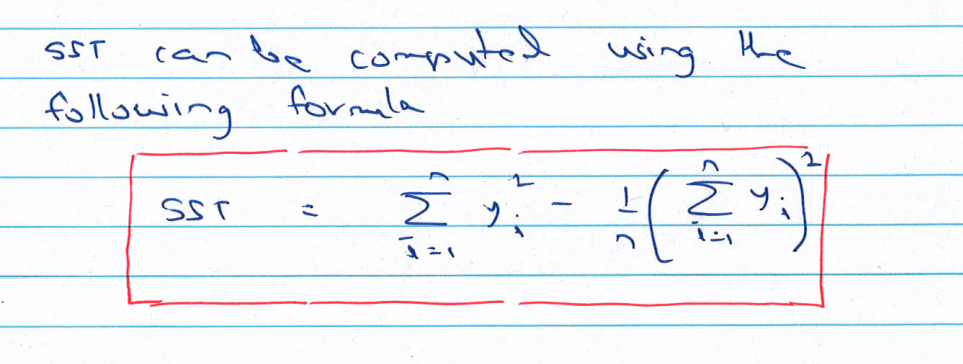 SST can be computed using the
following formula
SST = \sum_{i=1}^{n} y_i^2 - \frac{1}{n} \left( \sum_{i=1}^{n} y_i \right)^2